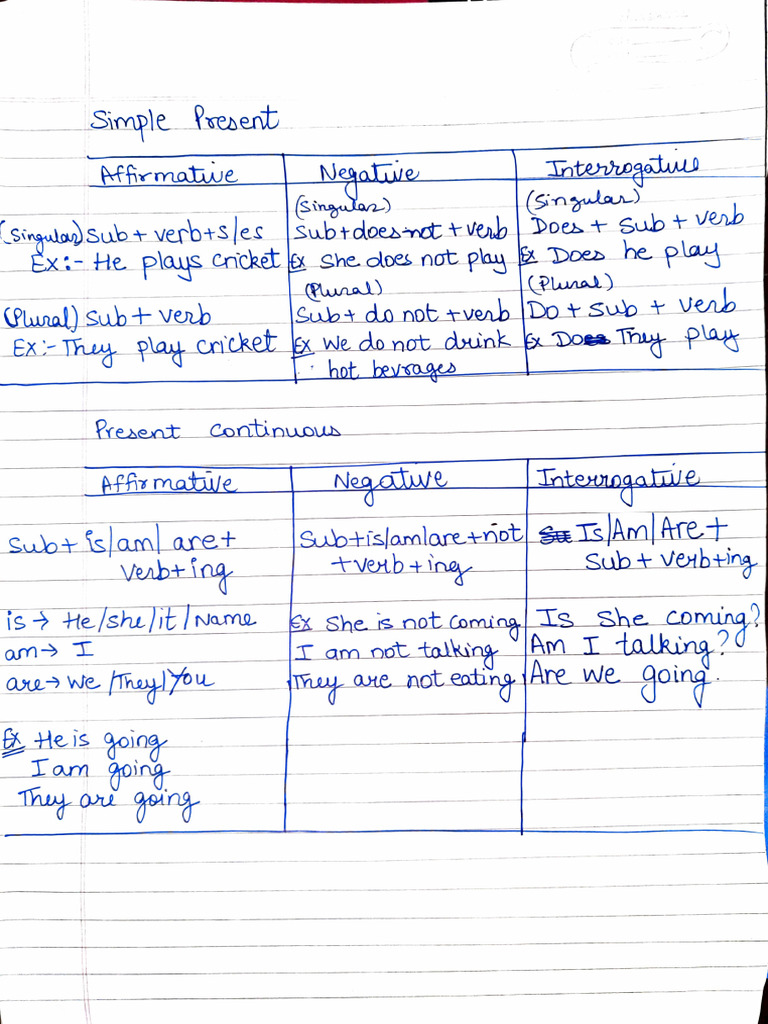 Simple Present
Affirmative Negative Interrogative
(Singular) (Singular)
(Singular) Sub + verb + s/es Sub + does not + verb Does + Sub + verb
Ex:- He plays cricket Ex She does not play Ex Does he play
(Plural) (Plural)
(Plural) Sub + verb Sub + do not + verb Do + Sub + verb
Ex:- They play cricket Ex We do not drink Ex Do They play
hot bevrages
Present Continuous
Affirmative Negative Interrogative
Sub + is/am/are + Sub + is/am/are + not Is/Am/Are +
verb + ing + verb + ing Sub + verb + ing
is → He/she/it/Name Ex She is not coming Is She coming?
am → I I am not talking Am I talking?
are → We/They/You They are not eating Are we going.
Ex He is going
I am going
They are going